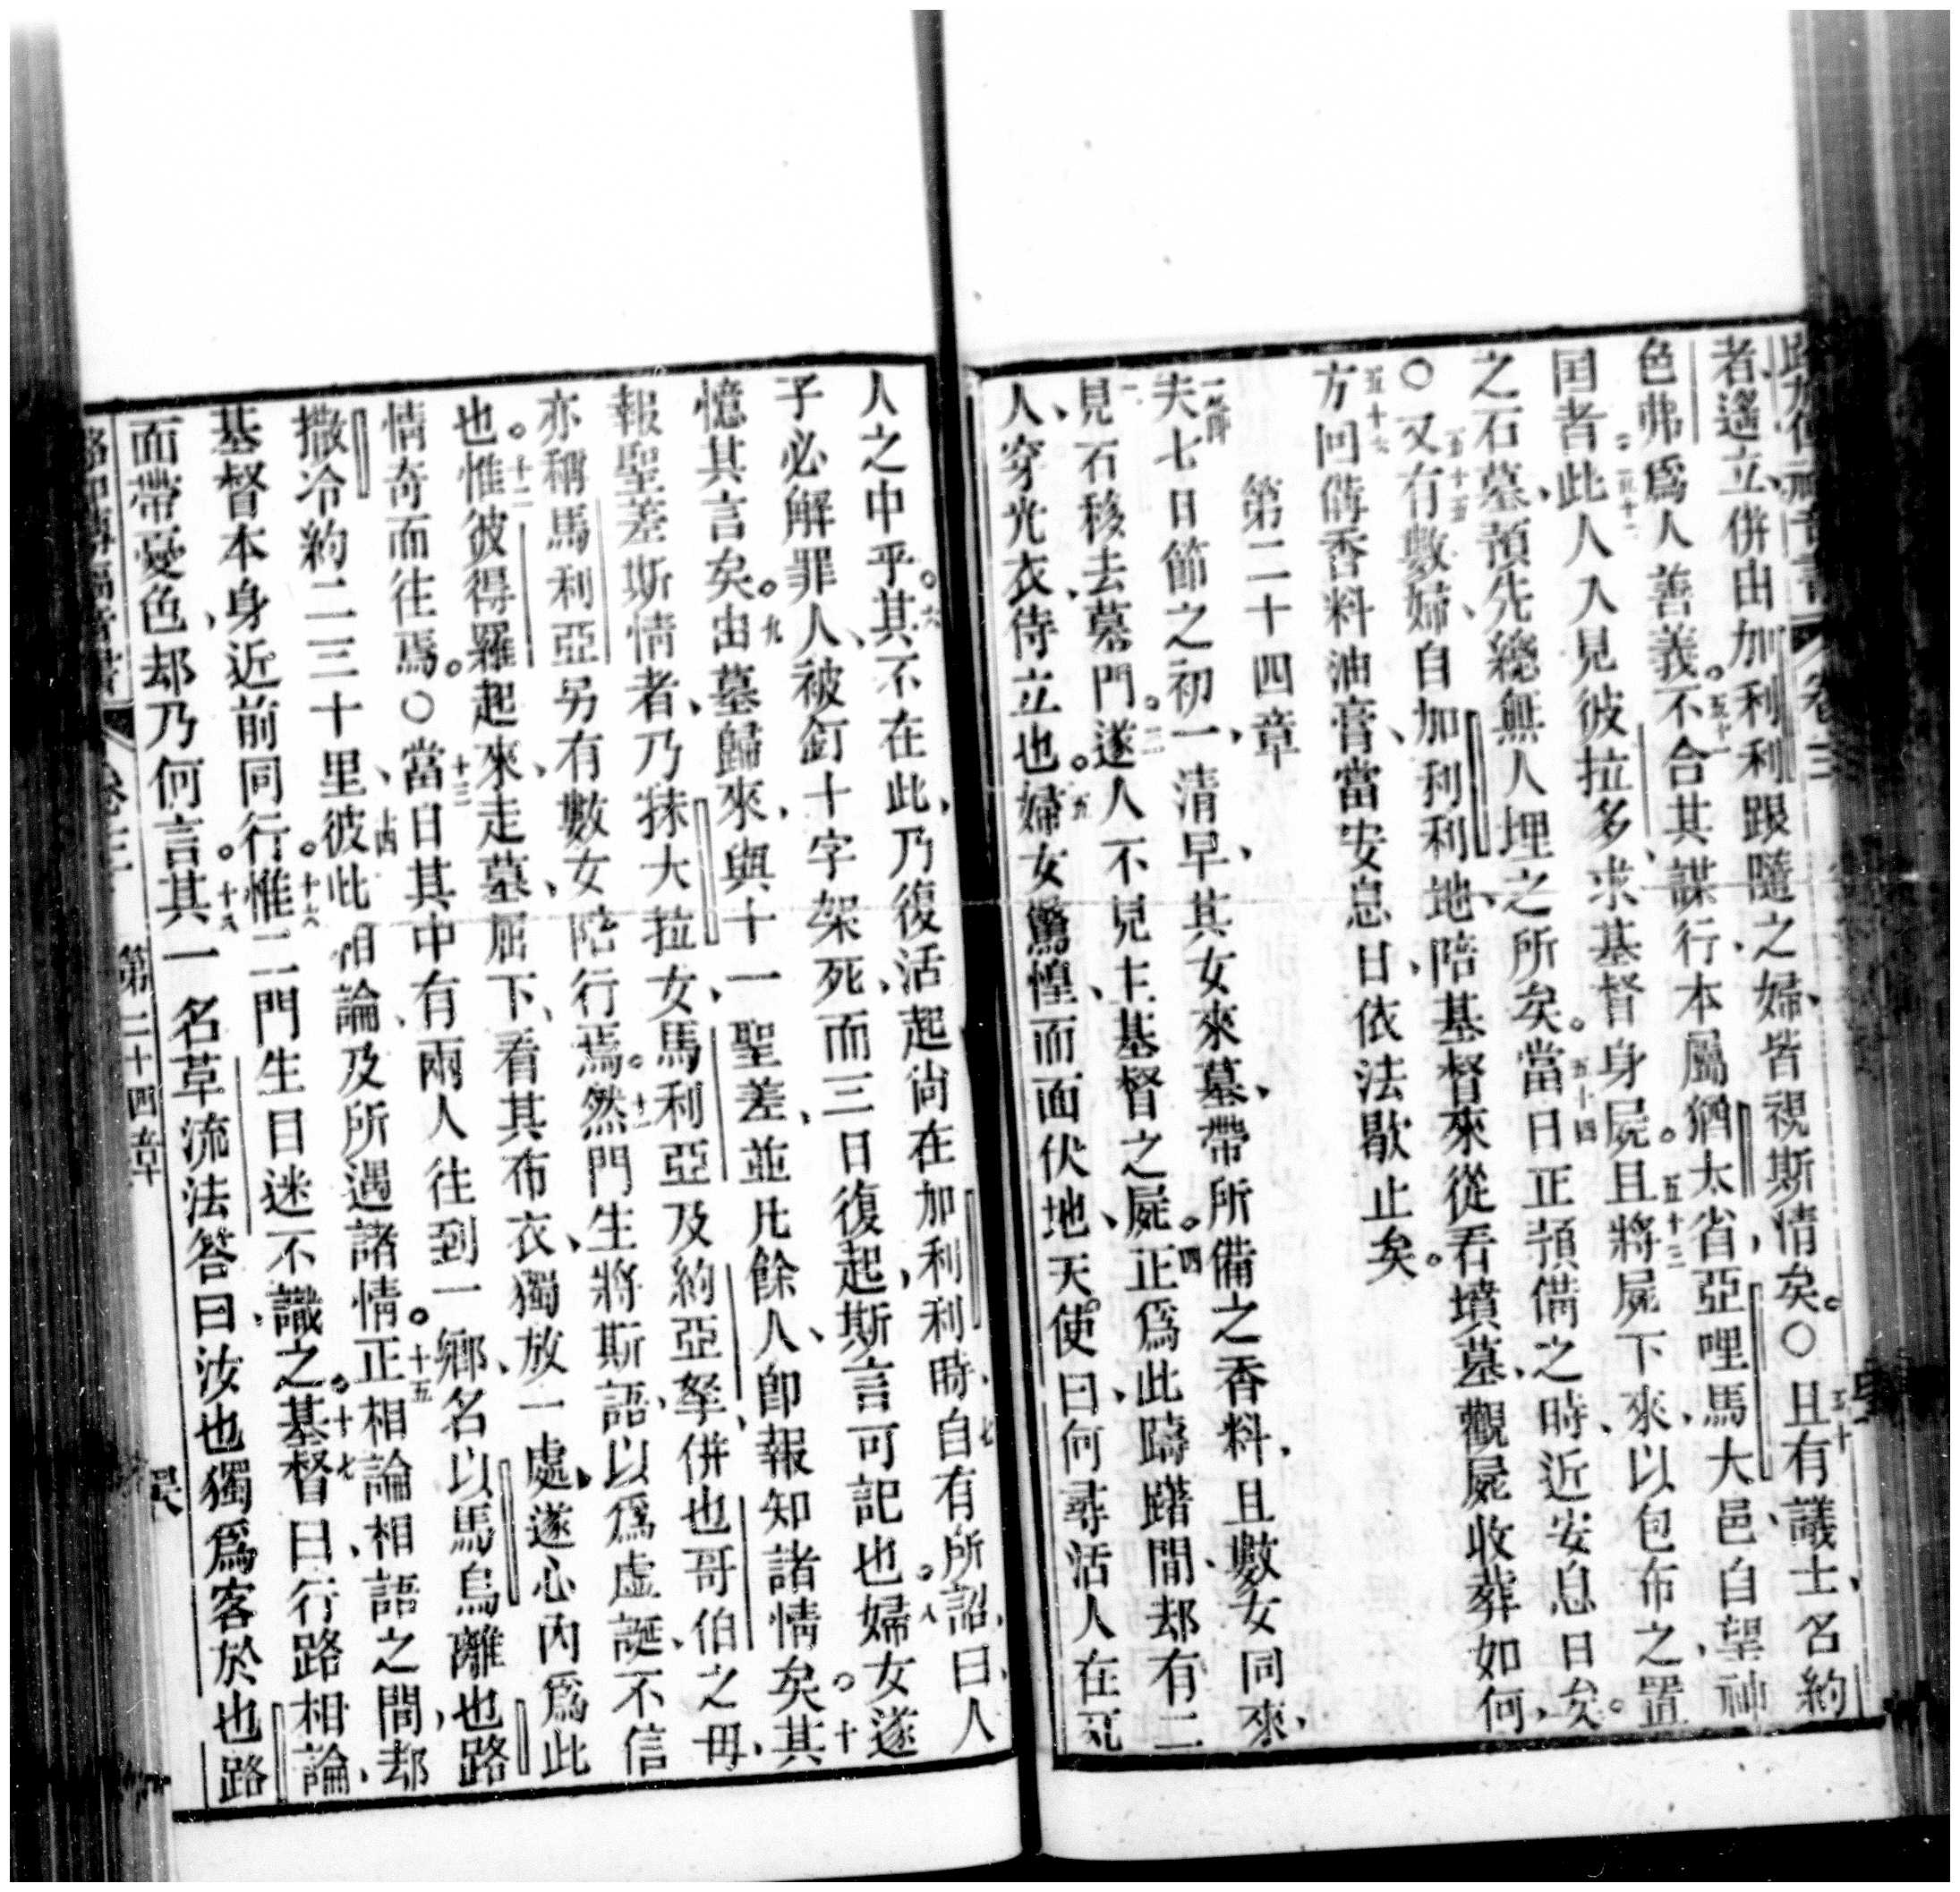 路加傳福音書 卷三
者、遙立、併由加利利跟隨之婦、皆視斯情矣。○五十且有議士、名約
色弗、爲人善義。五十一不合其謀行、本屬猶太省、亞哩馬大邑、自望神
国者、五十二此人入見彼拉多、求基督身屍。五十三且將屍下來、以包布之置
之石墓、預先總無人埋之所矣。五十四當日正預備之時、近安息日矣。
○五十五又有數婦、自加利利地、陪基督來、從看墳墓、觀屍收葬如何、
五十六方回俻香料油膏、當安息日、依法歇止矣。
第二十四章
一節夫七日節之初一、清早、其女來墓、帶所備之香料、且數女同來、
見石移去墓門。二三遂人不見主基督之屍。四正爲此躊躇間、却有二
人、穿光衣、侍立也。五婦女驚惶、而面伏地、天使曰、何尋活人在死
人之中乎。六其不在此、乃復活起、尙在加利利時、七自有所詔、曰、人
子必解罪人、被釘十字架死、而三日復起、斯言可記也。八婦女遂
憶其言矣。九由墓歸來、與十一聖差、並凡餘人、卽報知諸情矣。十其
報聖差斯情者、乃抹大拉女、馬利亞、及約亞拏、併也哥伯之毋、
亦稱馬利亞、另有數女陪行焉。十一然門生將斯語、以爲虛誕、不信
也。十二惟彼得羅起來、走墓、屈下、看其布衣、獨放一處、遂心內爲此
情奇而往焉。○十三當日其中有兩人往到一鄉、名以馬烏、離也路
撒冷約二三十里、十四彼此相論、及所遇諸情。十五正相論相語之間、却
基督本身近前同行。十六惟二門生目迷不識之。十七基督曰、行路相論、
面帶憂色、却乃何言。十八其一名革流法答曰、汝也獨爲客於也路
路加傳福音書 卷三 第二十四章